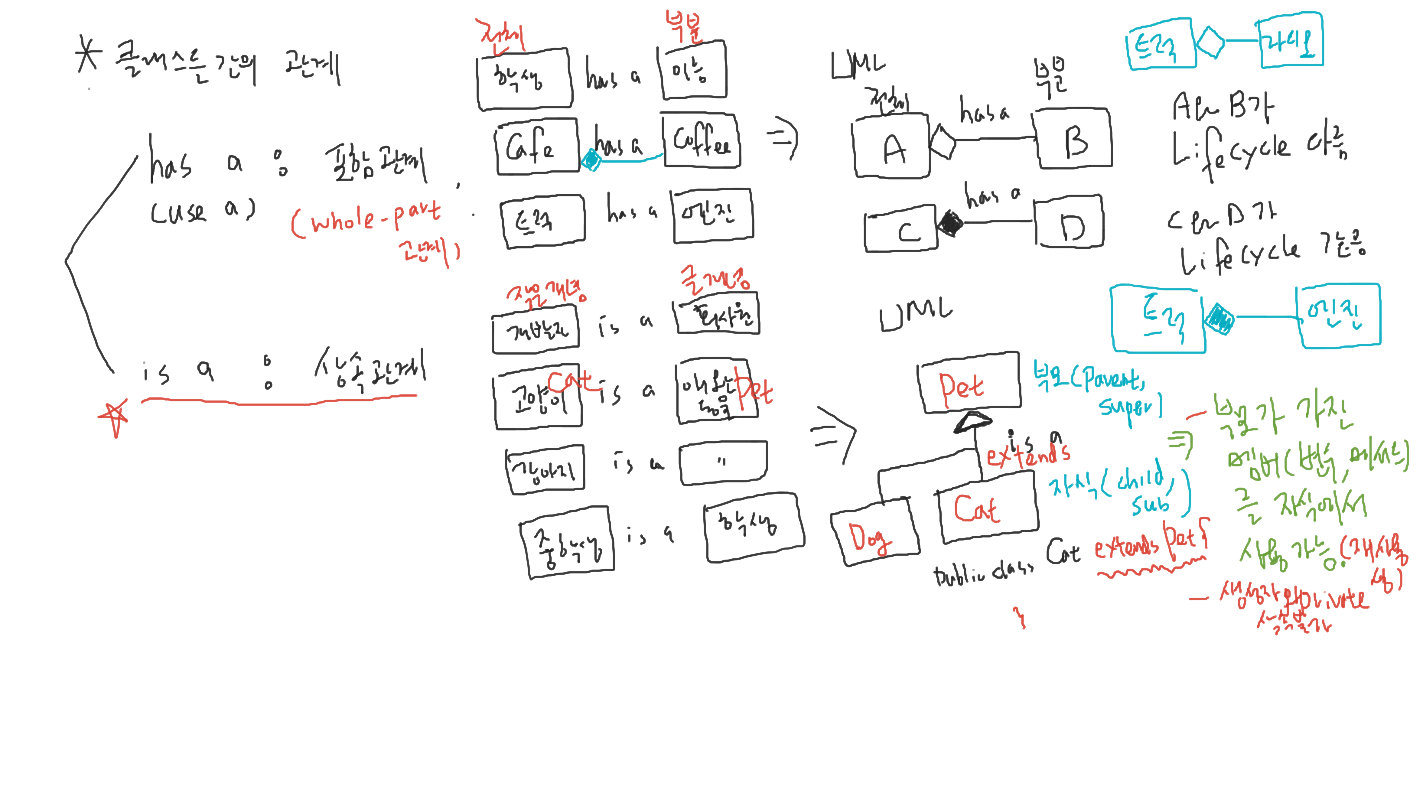 * 클래스들 간의 관계
has a : 포함관계
(use a)
(whole-part
관계)
is a : 상속관계
전체 부분
학생 has a 이름
Cafe has a Coffee
트럭 has a 엔진
작은개념 큰개념
개발자 is a 회사원
고양이 Cat is a 애완동물 Pet
강아지 is a "
중학생 is a 학생
⇒
UML
전체 부분
A has a B
C has a D
트럭 라디오
A와 B가
Lifecycle 다름
C와 D가
Lifecycle 같음
트럭 엔진
⇒
UML
Pet
부모(parent,
super)
is a
extends
자식(child,
sub)
Dog
Cat
public class Cat extends Pet{
}
⇒
- 부모가 가진
멤버(변수, 메서드)
를 자식에서
사용가능.(재사용
성)
- 생성자와 private
상속불가